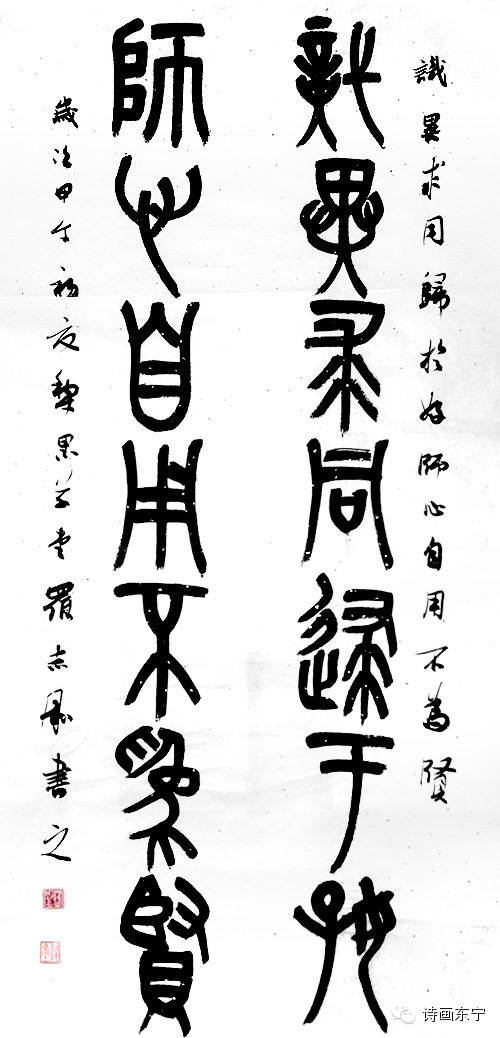 識異求同歸於好師心自用不為賢
識異求同歸于好
師心自用不為賢
歲次甲午初夏草堂羅志書之
诗画东宁